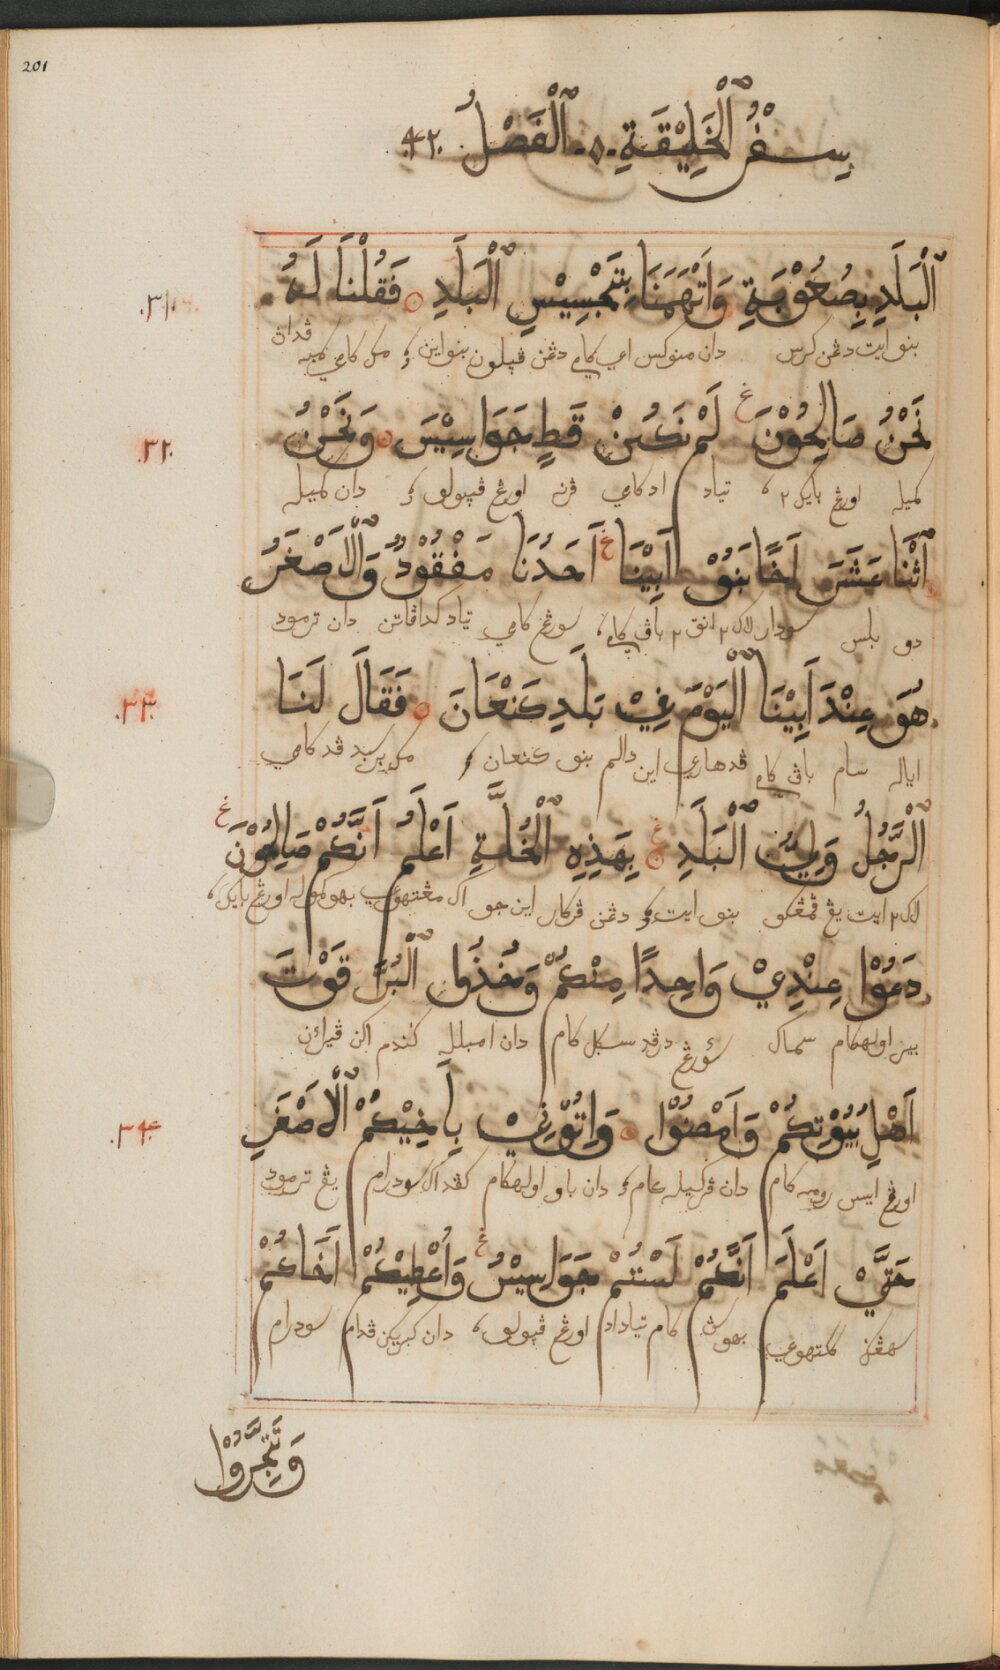 201
سِفْرُ الْخَلِيْقَةِ ٠٥٠ الْفَصْلُ ٤٢
الْبَلَدِ بِصُعُوْبَةٍ وَاَتْهَمَنَا بِتَجْسِيْسِ الْبَلَدِ ۝ فَقُلْنَا لَهُ
٣١
بنو ايت دڠن كرس دان منوكس اي كامي دڠن ڤپلون بنو اين مك كامي كمبه ڤداڽ
نَحْنُ صَالِحُوْنَ غ لَمْ نَكُنْ قَطٍ جَوَاسِيْسَ ۝ وَنَحْنُ
٣٢
كميله اورڠ بايك٢ تياد اد كامي ڤرنه اورڠ ڤپولو دان كميله
اثْنَا عَشَرَ اَخًا بَنُوْ اَبِيْنَا غ اَحَدُنَا مَفْقُوْدٌ وَالْاَصْغَرُ
دو بلس سودار لاك٢ انق٢ باڤ كامي سورڠ كامي تياد كداڤاتن دان ترمود
هُوَ عِنْدَ اَبِيْنَا الْيَوْمَ فِيْ بَلَدِ كَنْعَانَ ۝ فَقَالَ لَنَا
٣٣
اياله سام باڤ كامي ڤدهاري اين دالم بنو كنعان مك برسبد ڤد كامي
الرَّجُلُ وَلِيُّ الْبَلَدِ غ بِهَذِهِ الْخُلَّةِ اَعْلَمُ اَنَّكُمْ صَالِحُوْنَ غ
لاك٢ ايت يڠ ڤمڠكو بنو ايت دڠن ڤركار اين جو اك مڠتهوي بهو كموله اورڠ بايك٢
دَعُوْا عِنْدِيْ وَاحِدًا مِنْكُمْ وَخُذُوا الْبُرَّ قَوْتَ
بير اولهكام سماك سؤرڠ درڤد سكل كام دان امبلله كندم اكن ڤيراڽ
اَهْلِ بُيُوْتِكُمْ وَاَمْضُوْا ۝ وَاِتُوْنِيْ بِاَخِيْكُمْ الْاَصْغَرِ
٣٤
اورڠ ايسي رومه كام دان ڤركيله كام دان باو اولهكام كڤد اك سودرام يڠ ترمود
حَتَّيْ اَعْلَمَ اَنَّكُمْ لَسْتُمْ جَوَاسِيْسُ غ وَاُعْطِيْكُمْ اَخَاكُمْ
سهڠك كتهوي بهو كام تياد اد اورڠ ڤپولو دان كبريكن ڤدام سودرام
وَتَتَّجِرُوْا